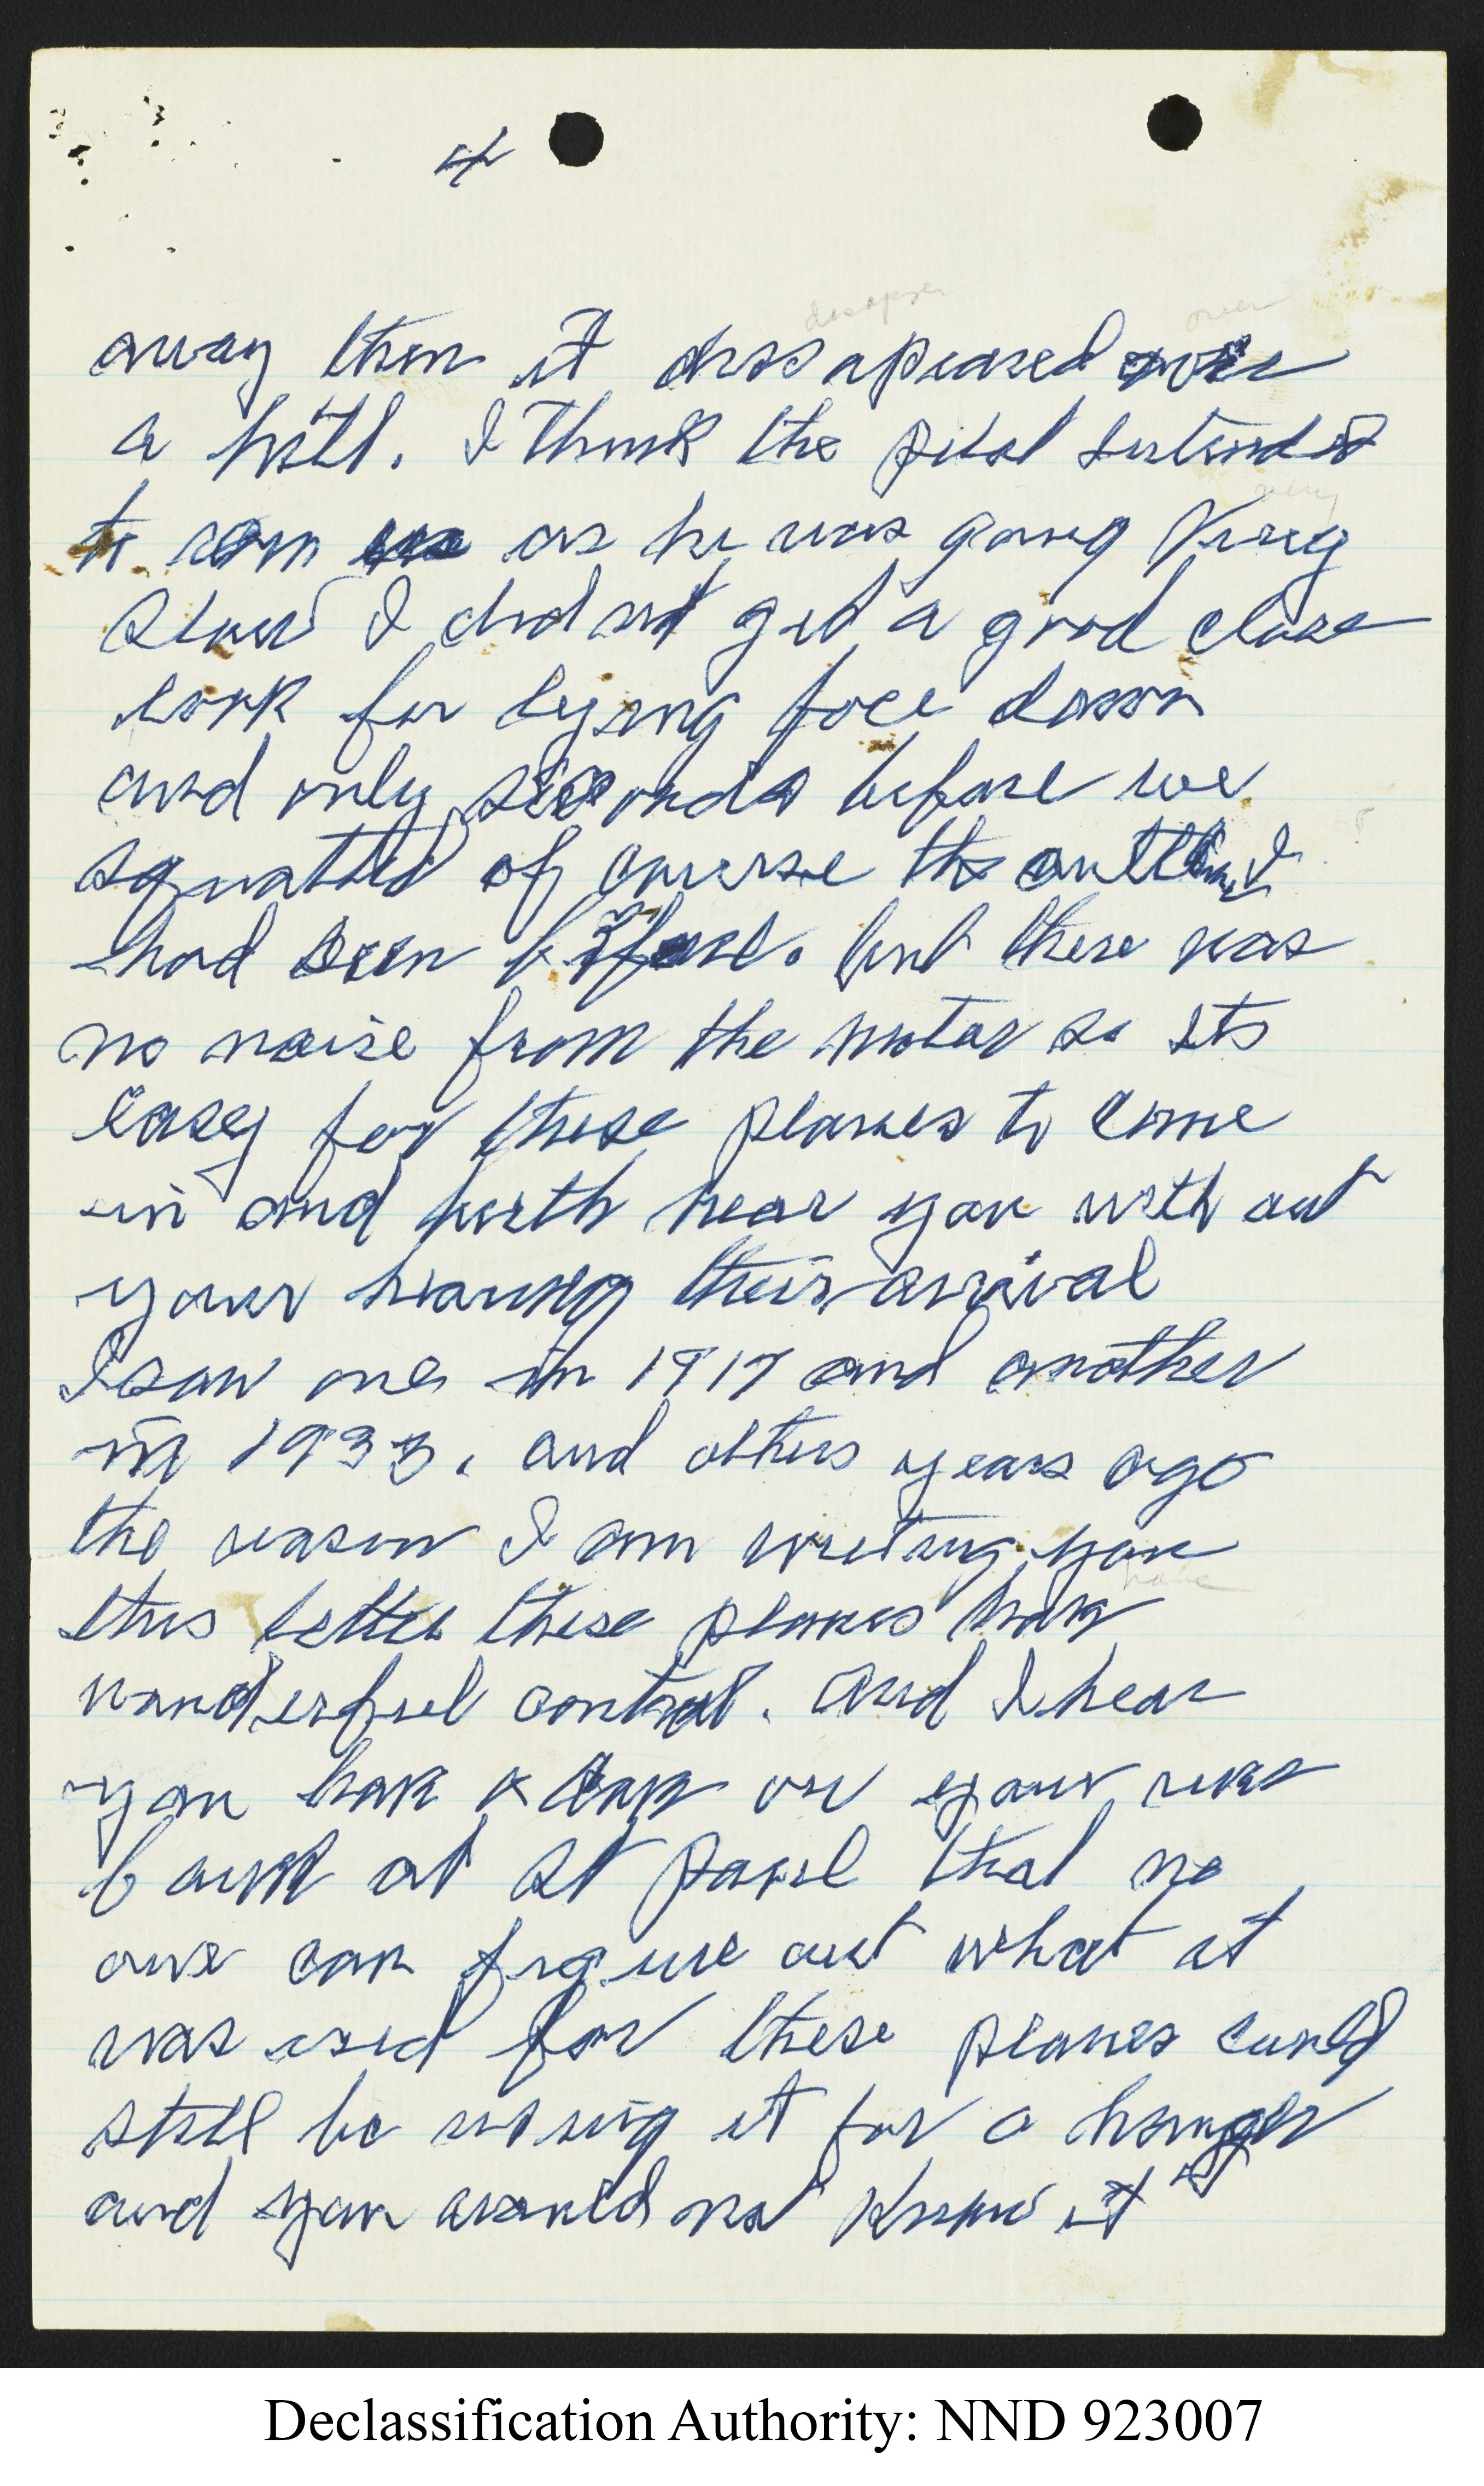 4
disapper
over
away then it dissapeared over
a hill. I think the pilot intended
very
to as he was going Virey
slow I did not get a good close
look for lyeing face down
and only seconds before we
squatted of course the outline I
had seen before. but there was
no noise from the motor so its
easey for these planes to come
in and north near you with out
your hearing their arrival
I saw one in 1917 and another
in 1933. and others years ago
the reason I am writeing you
have
this letter these planes hav
wonderful control. and I hear
you hav a on your
at St Paul that no
one can figure out what it
was used for these planes could
still be using it for a hanger
and you would not know it
Declassification Authority: NND 923007